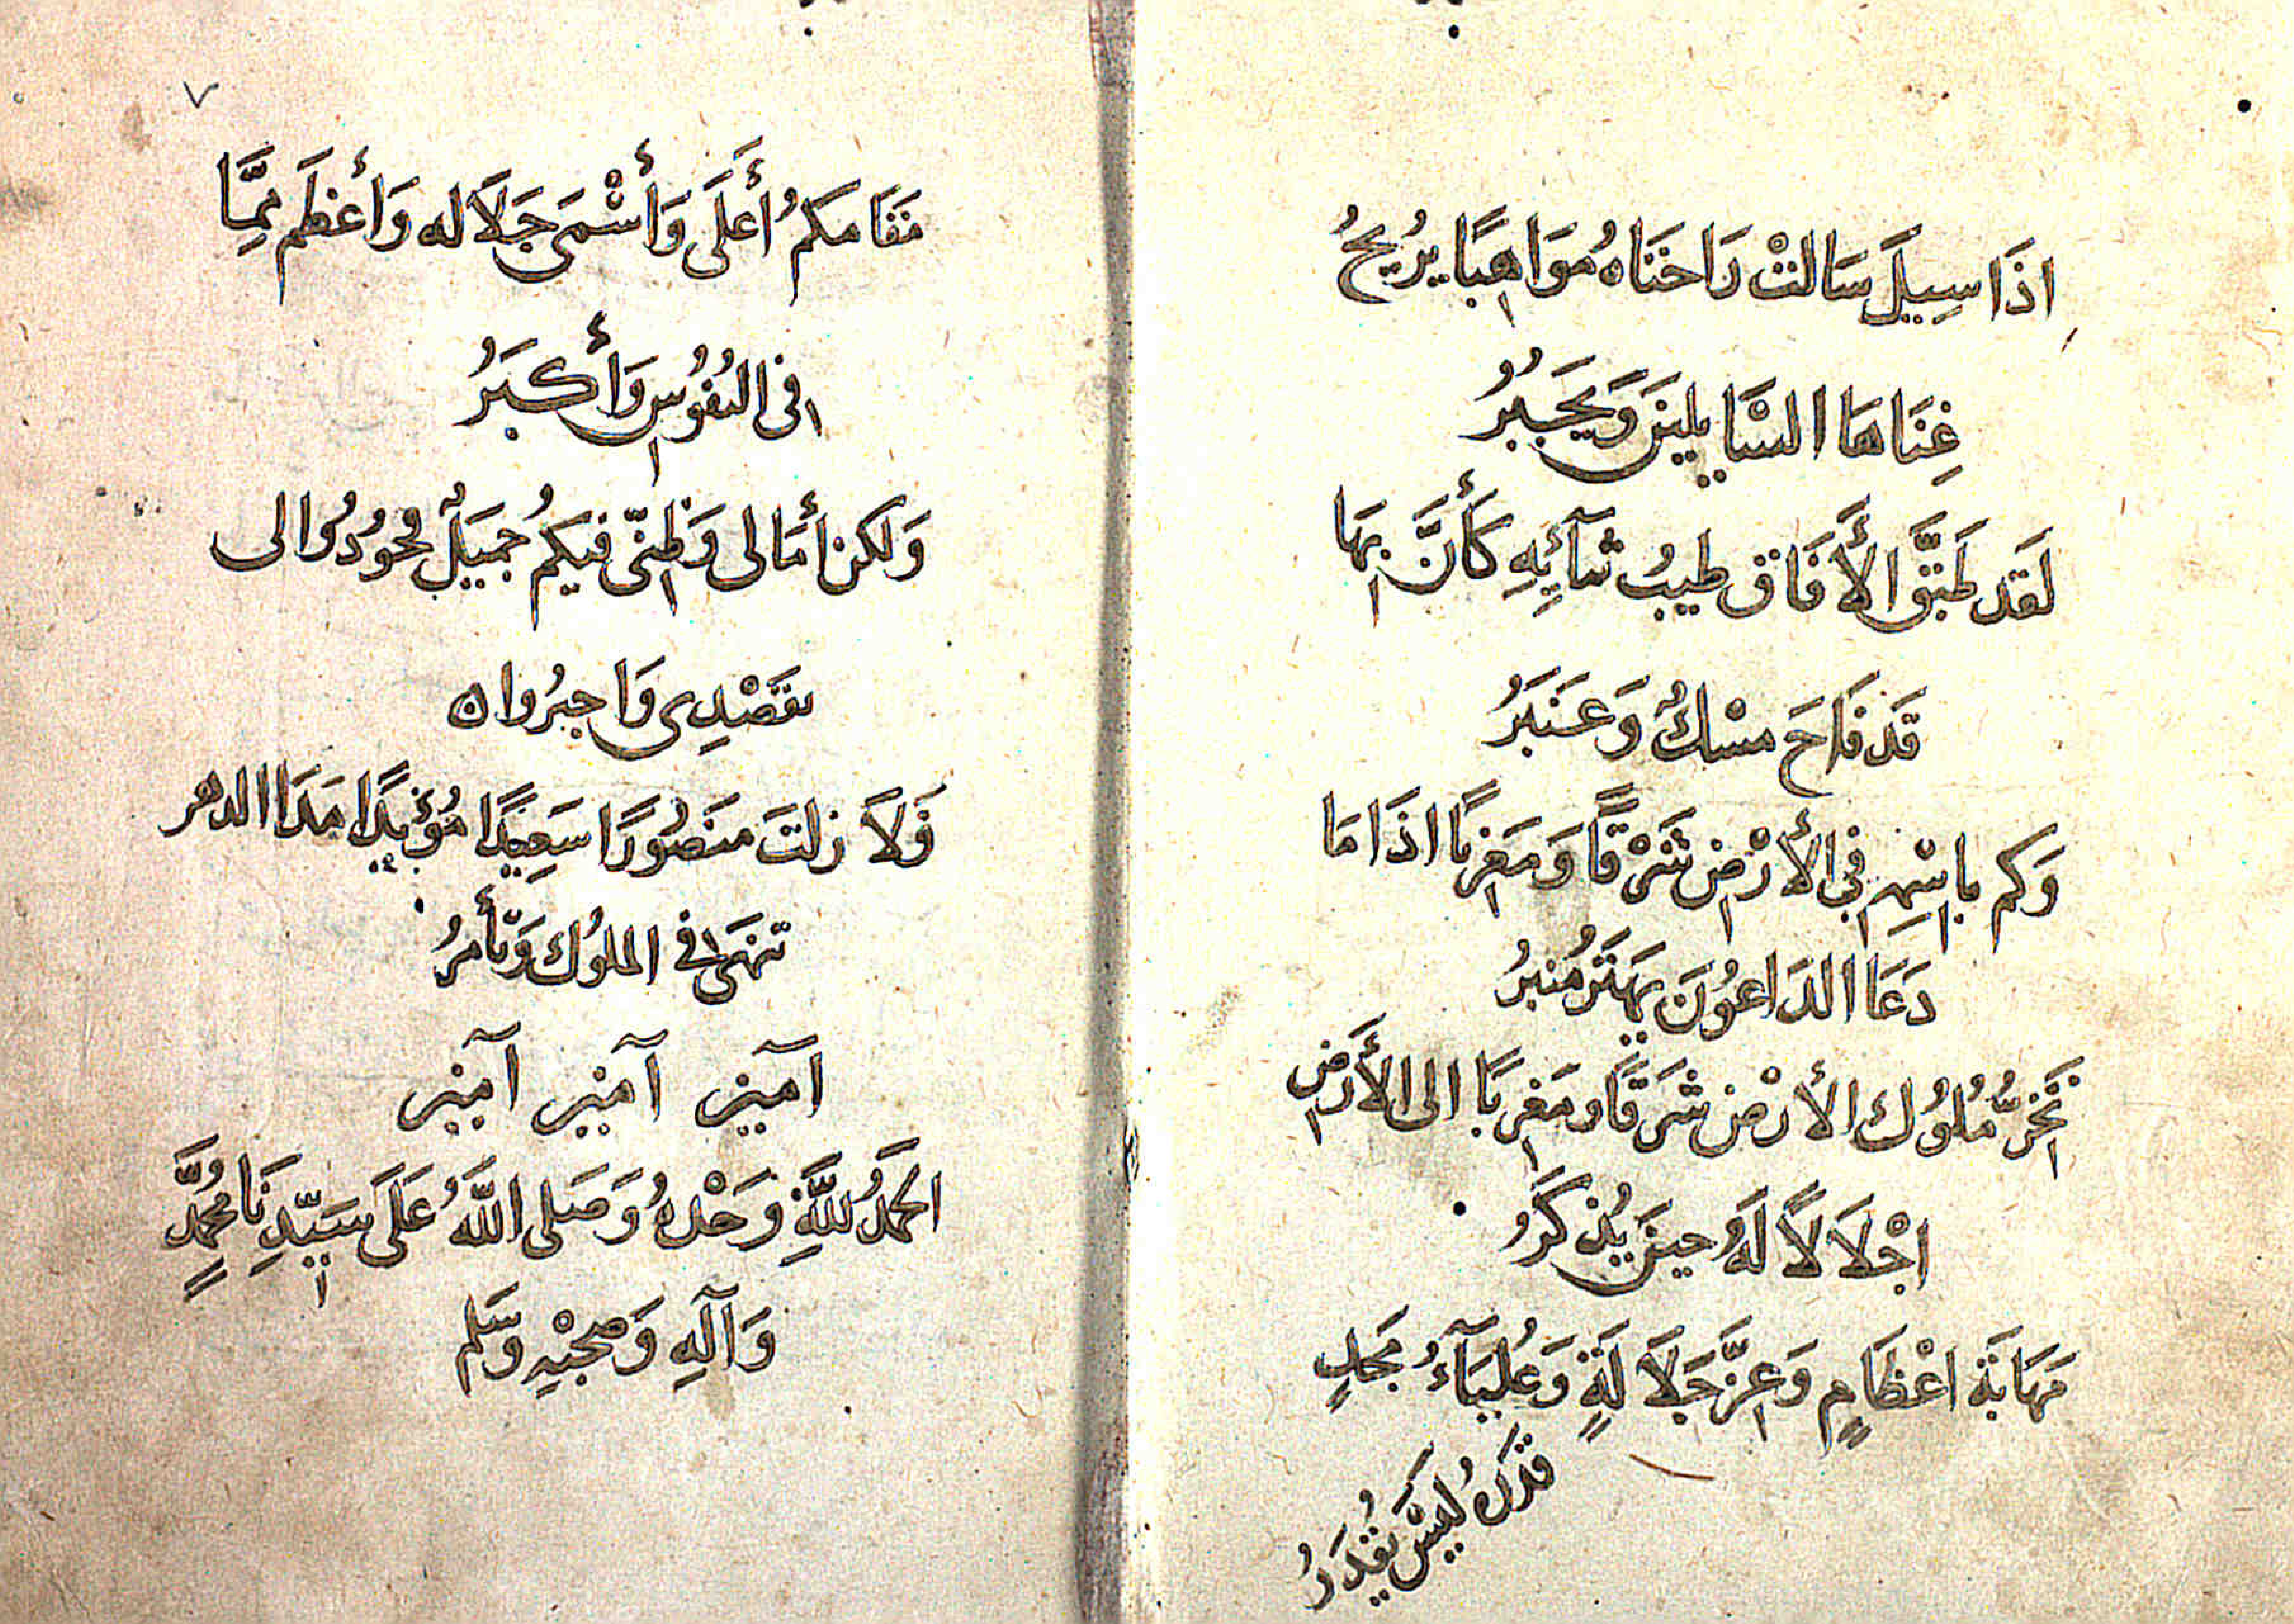 اذَا سِيلَ سَالتْ رَاحتَاهُ مُوَاهِبًا يُريحُ
غِنَاهَا السَّايلينَ وَيَجبُرُ
لَقَد طَبَّقَ الأَفَاق طيبُ ثنَآئِهِ كَأَنَّ بِهَا
قَد فَاحَ مسْكٌ وَعَنبَرُ
وَكم باسْمِهِ في الأَرْضِ شَرْقًا وَمَغرِبًا اذَا مَا
دَعَا الدَاعوُنَ يَهتَزُ مُنبرُ
تَخَرُّ مُلوُك الأرْض شَرقًا ومَغرِبًا الى الأَرَضِ
اجْلاَلاً لَهُ حينَ يُذكَرُ
مَهَابَة اعْظَامٍ وَعِزَّ جَلاَلَةٍ وَعُليَآءُ مَجدٍ
قَدْرُهُ لَيْسَ يُقدَرُ
٧
مَقَامكمُ أَعلَى وَأَسْمَى جَلاَله وَأَعظَم مِمَّا
فى النفُوُسِ وَأَكبَرُ
وَلكن أَمَالى وَظنّى فيكمُ جميَلٌ فجوُدُوا لى
بقَصْدِى وَاجبُروا ٥
فَلاَ زلتَ منَصُورًا سَعِيدًا مُؤَيدًا مَدَا الدهر
تنهَى في الملوُك وَتَأمرُ
آمين آمين آمين
الحَمدُ للَّهِ وَحْدهُ وَصَلى اللَّهُ عَلَى سَيّدِنَا مُحَمَّدٍ
وَآلهِ وَصحْبهِ وَسَلم